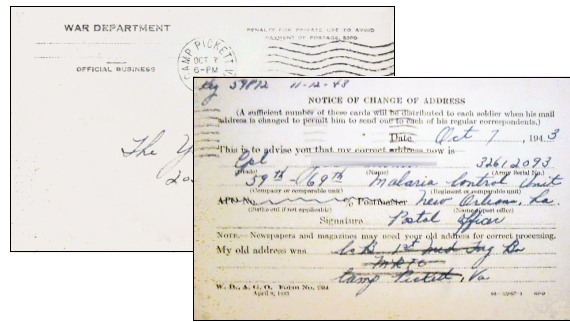 WAR DEPARTMENT
OFFICIAL BUSINESS
PENALTY FOR PRIVATE USE TO AVOID
PAYMENT OF POSTAGE, $300
CAMP PICKETT
OCT 7
6-PM
The
39812 11-12-43
NOTICE OF CHANGE OF ADDRESS
(A sufficient number of these cards will be distributed to each soldier when his mail
address is changed to permit him to send one to each of his regular correspondents.)
Date Oct 7, 1943
This is to advise you that my correct address now is
32612093
(Grade) (Name) (Army Serial No.)
39th - 69th Malaria Control Unit
(Company or comparable unit) (Regiment or comparable unit)
APO No. % Postmaster New Orleans, La.
(Strike out if not applicable) (Name of post office)
Signature Postal Officer
NOTE.—Newspapers and magazines may need your old address for correct processing.
My old address was Co B, 1st Med Tng Bn
MRTC
Camp Pickett, Va
W. D., A. G. O. Form No. 204
April 9, 1943